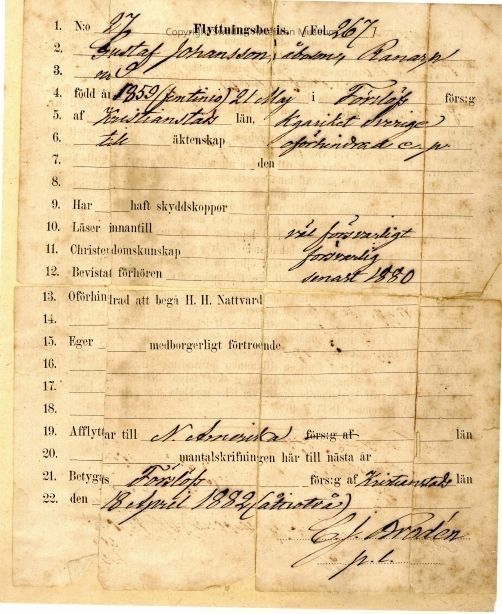 1. N:o 27 Flyttningsbevis. (Fol. 267)
2. Gustaf Johansson, åboson, Ranarp
3. no 5
4. född år 1859 (femtinio) 21 Maj i Förslöf förs:g
5. af Kristianstads län, Kgariket Sverige
6. till äktenskap oförhindrad
7. den
8.
9. Har haft skyddskoppor
10. Läser innantill väl försvarligt
11. Christendomskunskap försvarlig
12. Bevistat förhören senast 1880
13. Oförhindrad att begå H. H. Nattvard
14.
15. Eger medborgerligt förtroende
16.
17.
18.
19. Afflyttar till N. Amerika förs:g af län
20. mantalskrifningen här till nästa år
21. Betygas Förslöf förs:g af Kristianstads län
22. den 18 April 1882 (åttiotvå)
Brodén
p. l.